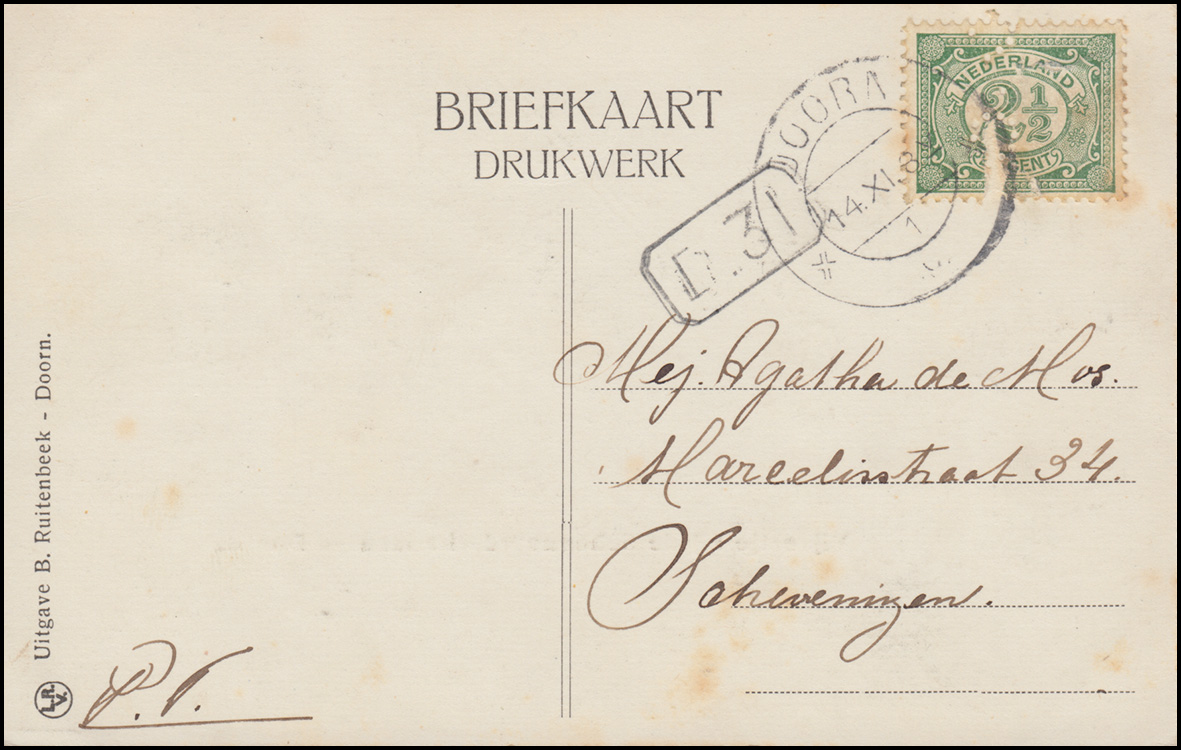 NEDERLAND
2 1/2
CENT
BRIEFKAART
DRUKWERK
DOORN
14.XI. 8
1
D.31
Mej. Agatha de Mos.
Marcelisstraat 34.
Scheveningen.
Uitgave B. Ruitenbeek - Doorn.
L.R.
V.
P.V.